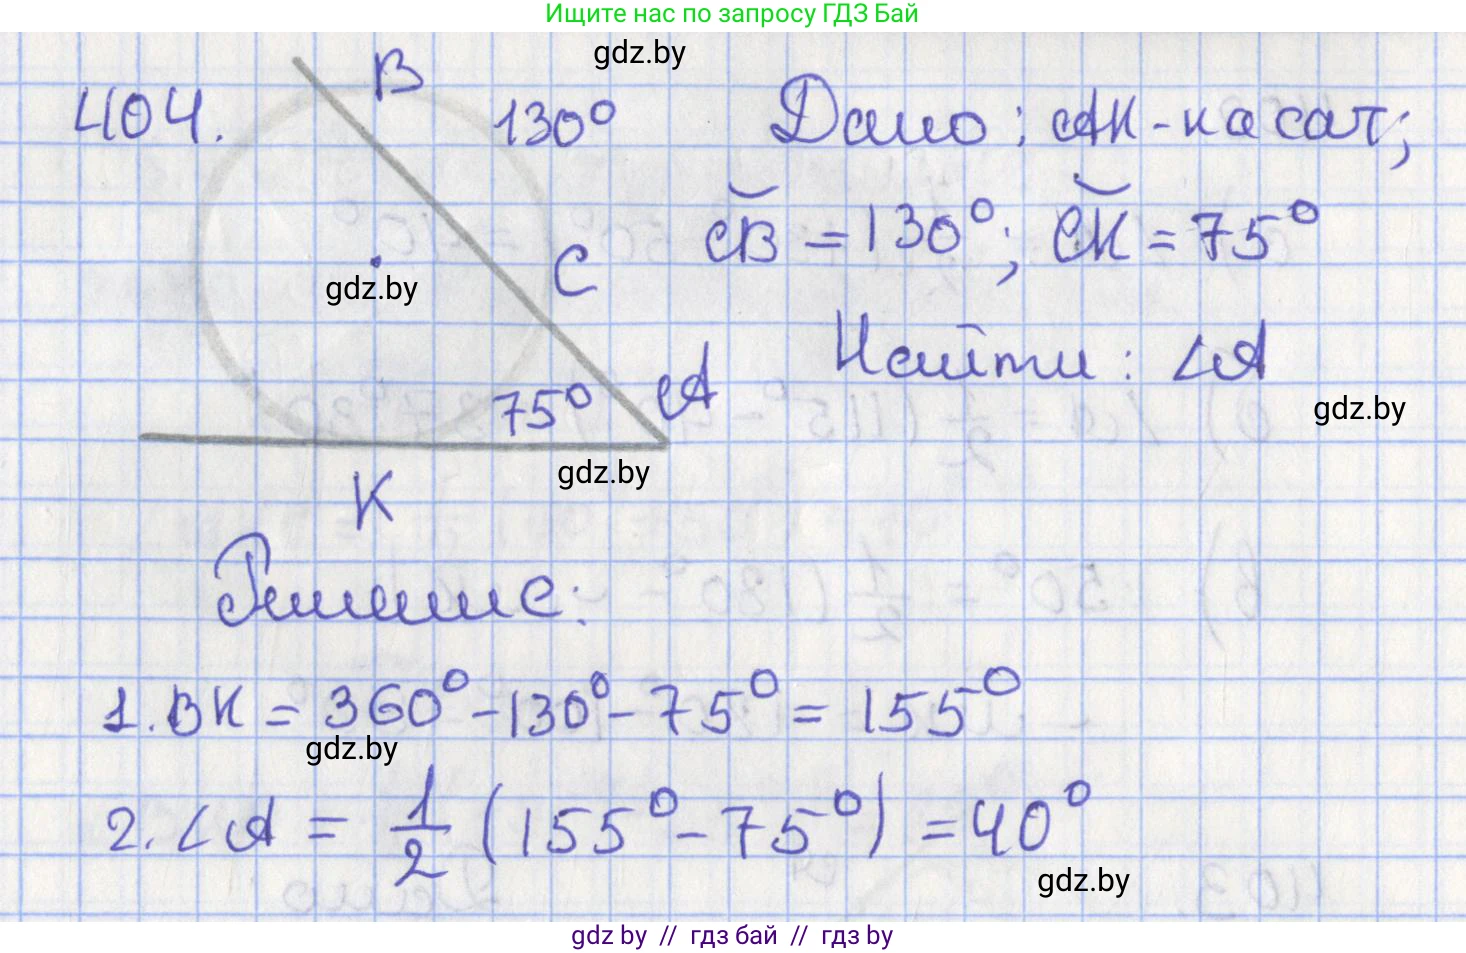 Ищите нас по запросу ГДЗ Бай
gdz.by
404.
B
130°
Дано: AK - касат;
C͝B = 130°; C͝K = 75°
C
gdz.by
Найти: ∠A
75°
A
gdz.by
gdz.by
K
Решение:
1. BK = 360° - 130° - 75° = 155°
gdz.by
2. ∠A = 1/2 (155° - 75°) = 40°
gdz.by
gdz by // гдз бай // гдз by